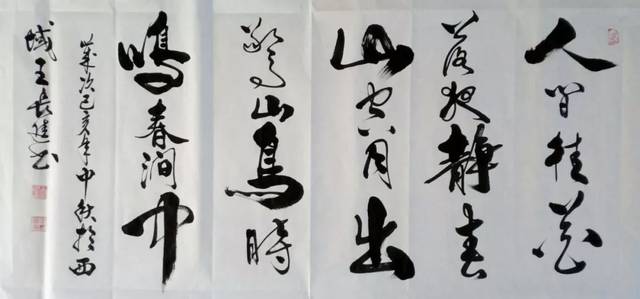 人闲桂花
落夜静春
山空月出
驚山鳥時
鳴春涧中
歲次己亥年中秋於西
域王長建书